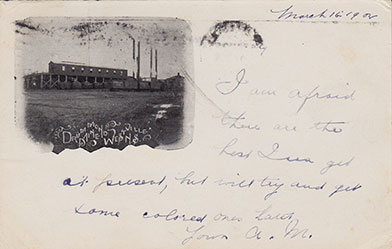 March 16 1902
I am afraid
these are the
best I can get
at present, but will try and get
some colored ones later.
Yours A. M.